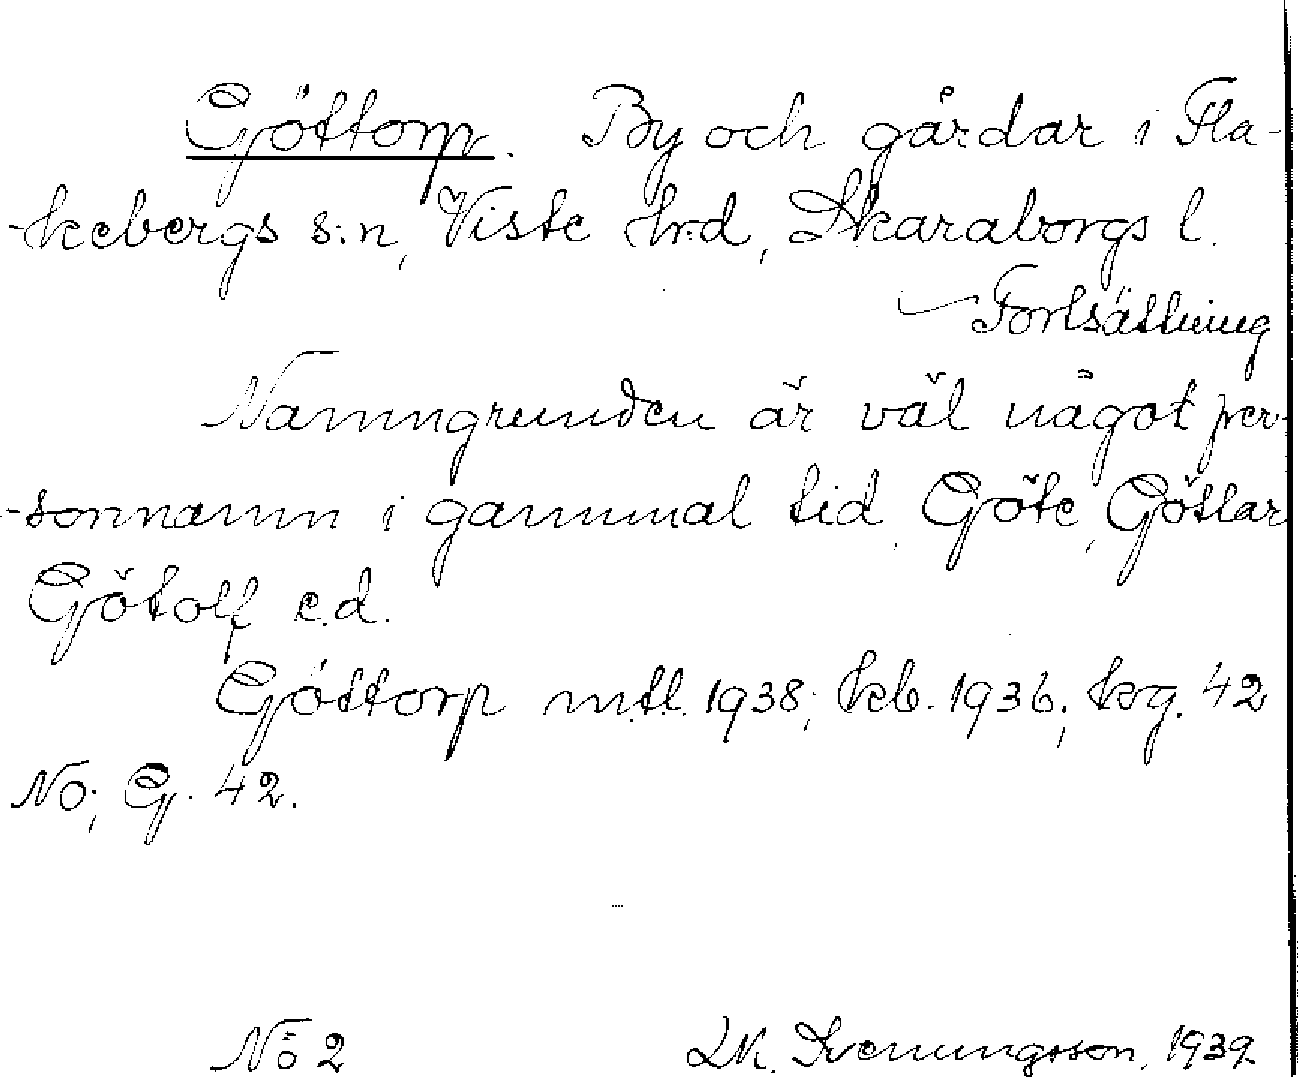 Göttorp. By och gårdar i Fla-
-kebergs s:n, Viste hrd, Skaraborgs l.
Fortsättning
Namngrunden är väl något per-
-sonnamn i gammal tid, Göte, Götlar
Götolf e.d.
Göttorp mtl. 1938; kb. 1936; krg. 42
NO; G. 42.
NÖ 2 Svenungsson, 1939.